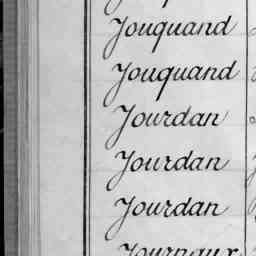 Jouquand
Jouquand
Jourdan
Jourdan
Jourdan
Journaux